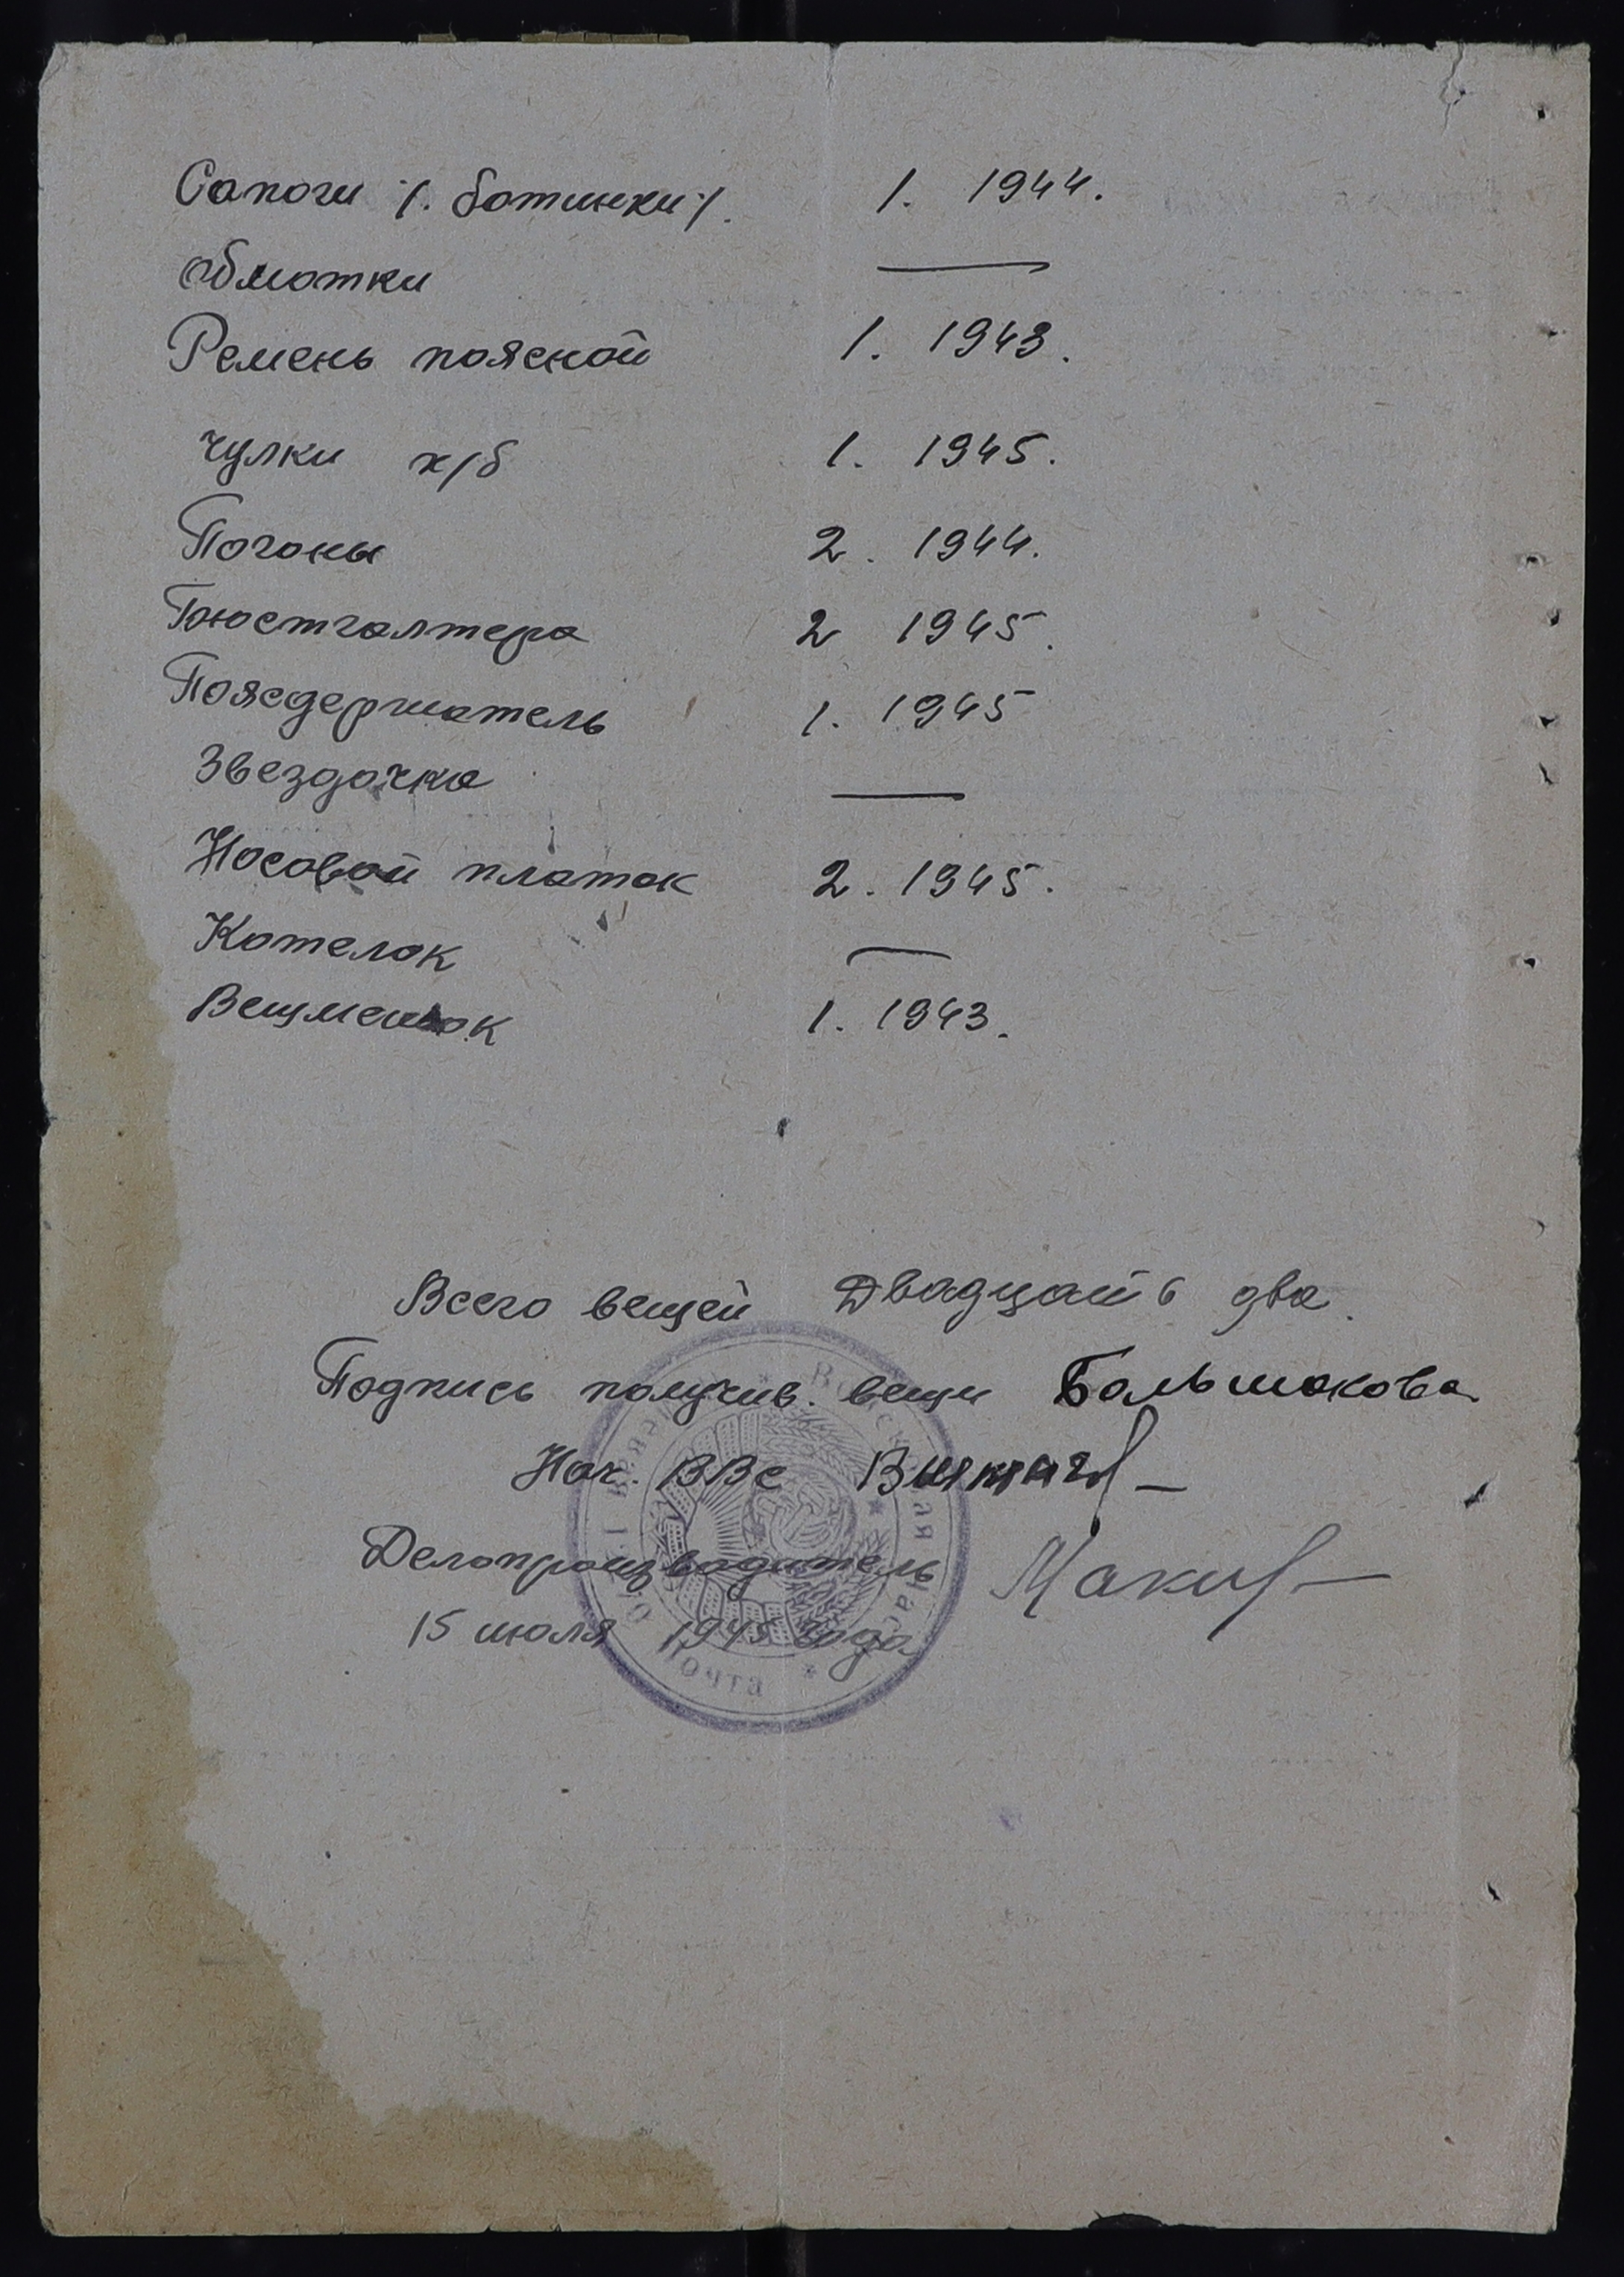 Сапоги /. ботинки /. 1. 1944.
Обмотки —
Ремень поясной 1. 1943.
Чулки х/б 1. 1945.
Погоны 2. 1944.
Бюстгалтера 2 1945.
Поясдержатель 1. 1945
Звездочка —
Носовой платок 2. 1945.
Котелок —
Вещмешок 1. 1943.
Всего вещей Двадцать два.
Подпись получив. вещи Большакова
Нач. ВВС
Делопроизводитель
15 июля 1945 года
Почта